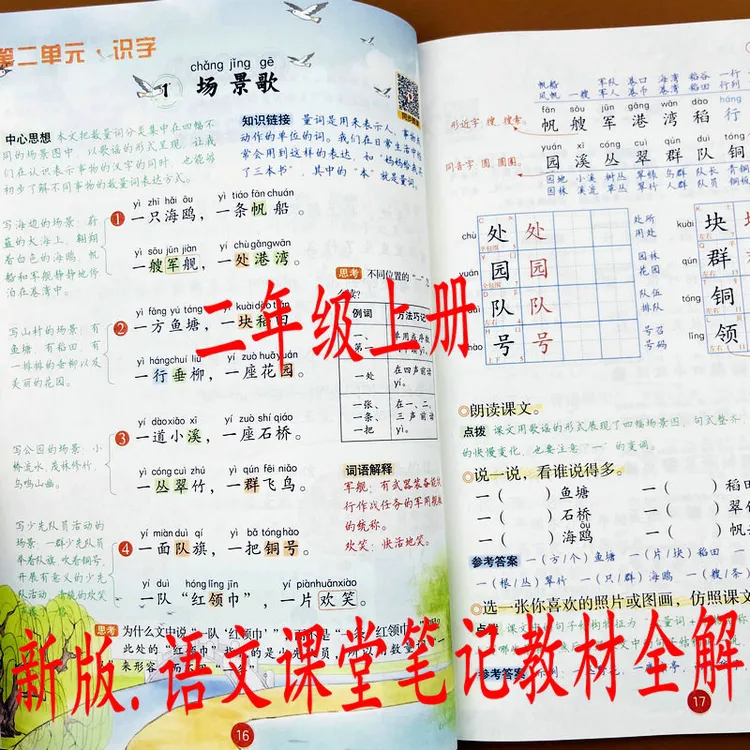 第二单元·识字
chǎng jǐng gē
1 场景歌
中心思想 本文把数量词分类集中在四幅不
同的场景图中，以歌谣的形式呈现，让我
们在认识表示事物的汉字的同时，也能够
初步了解不同事物的数量词表达方式。
知识链接 量词是用来表示人、事物或
动作的单位的词。我们在日常生活中经
常会用到这样的表达，如“妈妈给我买
了三本书”，其中的“本”就是量词。
同步
写海边的场景：蔚
蓝的大海上，翱翔
着白色的海鸥，帆
船和军舰静静地停
泊在港湾中。
yì zhī hǎi ōu yì tiáo fān chuán
1 一只海鸥，一条帆船。
yì sōu jūn jiàn yí chù gǎng wān
一艘军舰，一处港湾。
写山村的场景：有
鱼塘，有稻田，有
一排排的垂柳以及
美丽的花园。
yì fāng yú táng yí kuài dào tián
2 一方鱼塘，一块稻田
yì háng chuí liǔ yí zuò huā yuán
一行垂柳，一座花园。
写公园的场景：小
桥流水，茂林修竹，
鸟鸣山幽。
yí dào xiǎo xī yí zuò shí qiáo
3 一道小溪，一座石桥。
yì cóng cuì zhú yì qún fēi niǎo
一丛翠竹，一群飞鸟。
写少先队员活动的
场景：一群少先队员
举着队旗，吹着铜号，
开展有意义的少先
队活动，
yí miàn duì qí yì bǎ tóng hào
4 一面队旗，一把铜号，
yí duì hóng lǐng jīn yí piàn huān xiào
一队“红领巾”，一片欢笑。
思考 不同位置的“一”
例词 方法巧记
一、
第一
单用在序数
一处
在四声前读
yí。
一张、
一条、
一把
在一、二、
三声前读
yì。
词语解释
军舰：有武器装备能执
行作战任务的军用舰艇
的统称。
欢笑：快活地笑。
思考 为什么文中说“一队‘红领巾’”
此处的“红领巾”
来形容
16
帆船 军队 港口 海湾 稻谷 一行
风帆 一艘 军人 港币 港湾 稻田 行列
fān sōu jūn gǎng wān dào háng
形近字：搜，搜索。
帆 艘 军 港 湾 稻 行
yuán xī cóng cuì qún duì tóng
同音字：圆，圆圈。
园 溪 丛 翠 群 队 铜
chù 处 处
处所
用处
yuán 园 园
园林
花园
duì 队 队
队伍
排队
hào 号 号
号召
号码
kuài 块
qún 群
tóng 铜
领
朗读课文。
点拨 课文用歌谣的形式展现了四幅场景图，句式整齐，
的快慢变化，也要注意“一”的变调。
说一说，看谁说得多。
一（ ）鱼塘 一（ ）稻田
一（ ）石桥 一（ ）翠
ōu
一（ ）海鸥 一（ ）帆
参考答案 一（方/个）鱼塘 一（片/块）稻田
一（根/丛）翠竹 一（只/群）海鸥 一（艘/条）
选一张你喜欢的照片或图画，仿照课文
点拨
参考答案
17
二年级上册
新版.语文课堂笔记教材全解